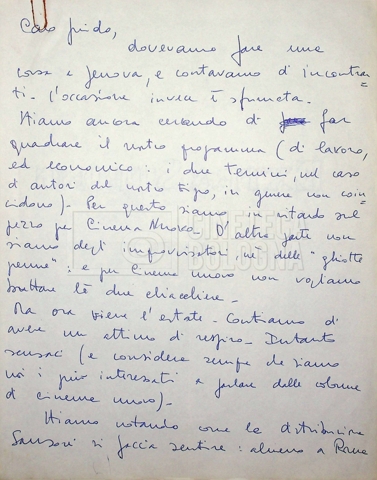 Caro Guido,
dovevamo fare una
corsa a Genova, e contavamo di incontrar=
ti. L'occasione invece è sfumata.
Stiamo ancora cercando di far
quadrare il nostro programma (di lavoro,
ed economico: i due termini, nel caso
di autori del nostro tipo, in genere non coin=
cidono). Per questo siamo in ritardo sul
pezzo per Cinema Nuovo. D'altra parte non
siamo degli improvvisatori, nè delle "ghiotte
penne": e per Cinema nuovo non vogliamo
buttare lì due chiacchiere.
Ma ora viene l'estate. Contiamo di
avere un attimo di respiro. Intanto
scusaci (e considera sempre che siamo
noi i più interessati a parlare dalle colonne
di cinema nuovo).
Stiamo notando come la distribuzione
Sansoni si faccia sentire: almeno a Roma